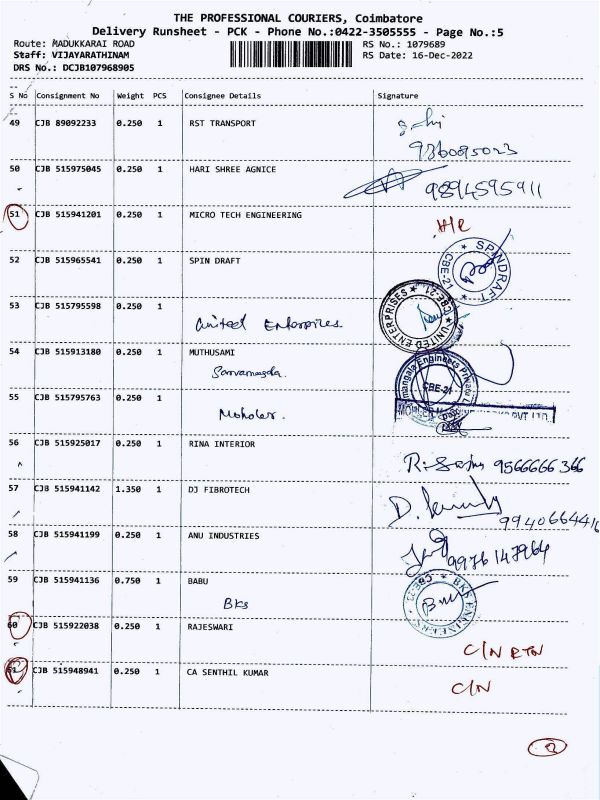 THE PROFESSIONAL COURIERS, Coimbatore
Delivery Runsheet - PCK - Phone No.:0422-3505555 - Page No.:5
Route: MADUKKARAI ROAD RS No.: 1079689
Staff: VIJAYARATHINAM RS Date: 16-Dec-2022
DRS No.: DCJB107968905
S No Consignment No Weight PCS Consignee Details Signature
49 CJB 89092233 0.250 1 RST TRANSPORT
9360095023
50 CJB 515975045 0.250 1 HARI SHREE AGNICE
9894595911
51 CJB 515941201 0.250 1 MICRO TECH ENGINEERING
52 CJB 515965541 0.250 1 SPIN DRAFT
SPINDRAFT CBE-21
53 CJB 515795598 0.250 1
United Enterprises
UNITED ENTERPRISES CBE-21
54 CJB 515913180 0.250 1 MUTHUSAMI
Engineers Private CBE-21
55 CJB 515795763 0.250 1
56 CJB 515925017 0.250 1 RINA INTERIOR
9566666 366
57 CJB 515941142 1.350 1 DJ FIBROTECH
58 CJB 515941199 0.250 1 ANU INDUSTRIES
9976147964
59 CJB 515941136 0.750 1 BABU
BKS
BKS ENGINEERS
60 CJB 515922038 0.250 1 RAJESWARI
C/N RTN
61 CJB 515948941 0.250 1 CA SENTHIL KUMAR
C/N
2